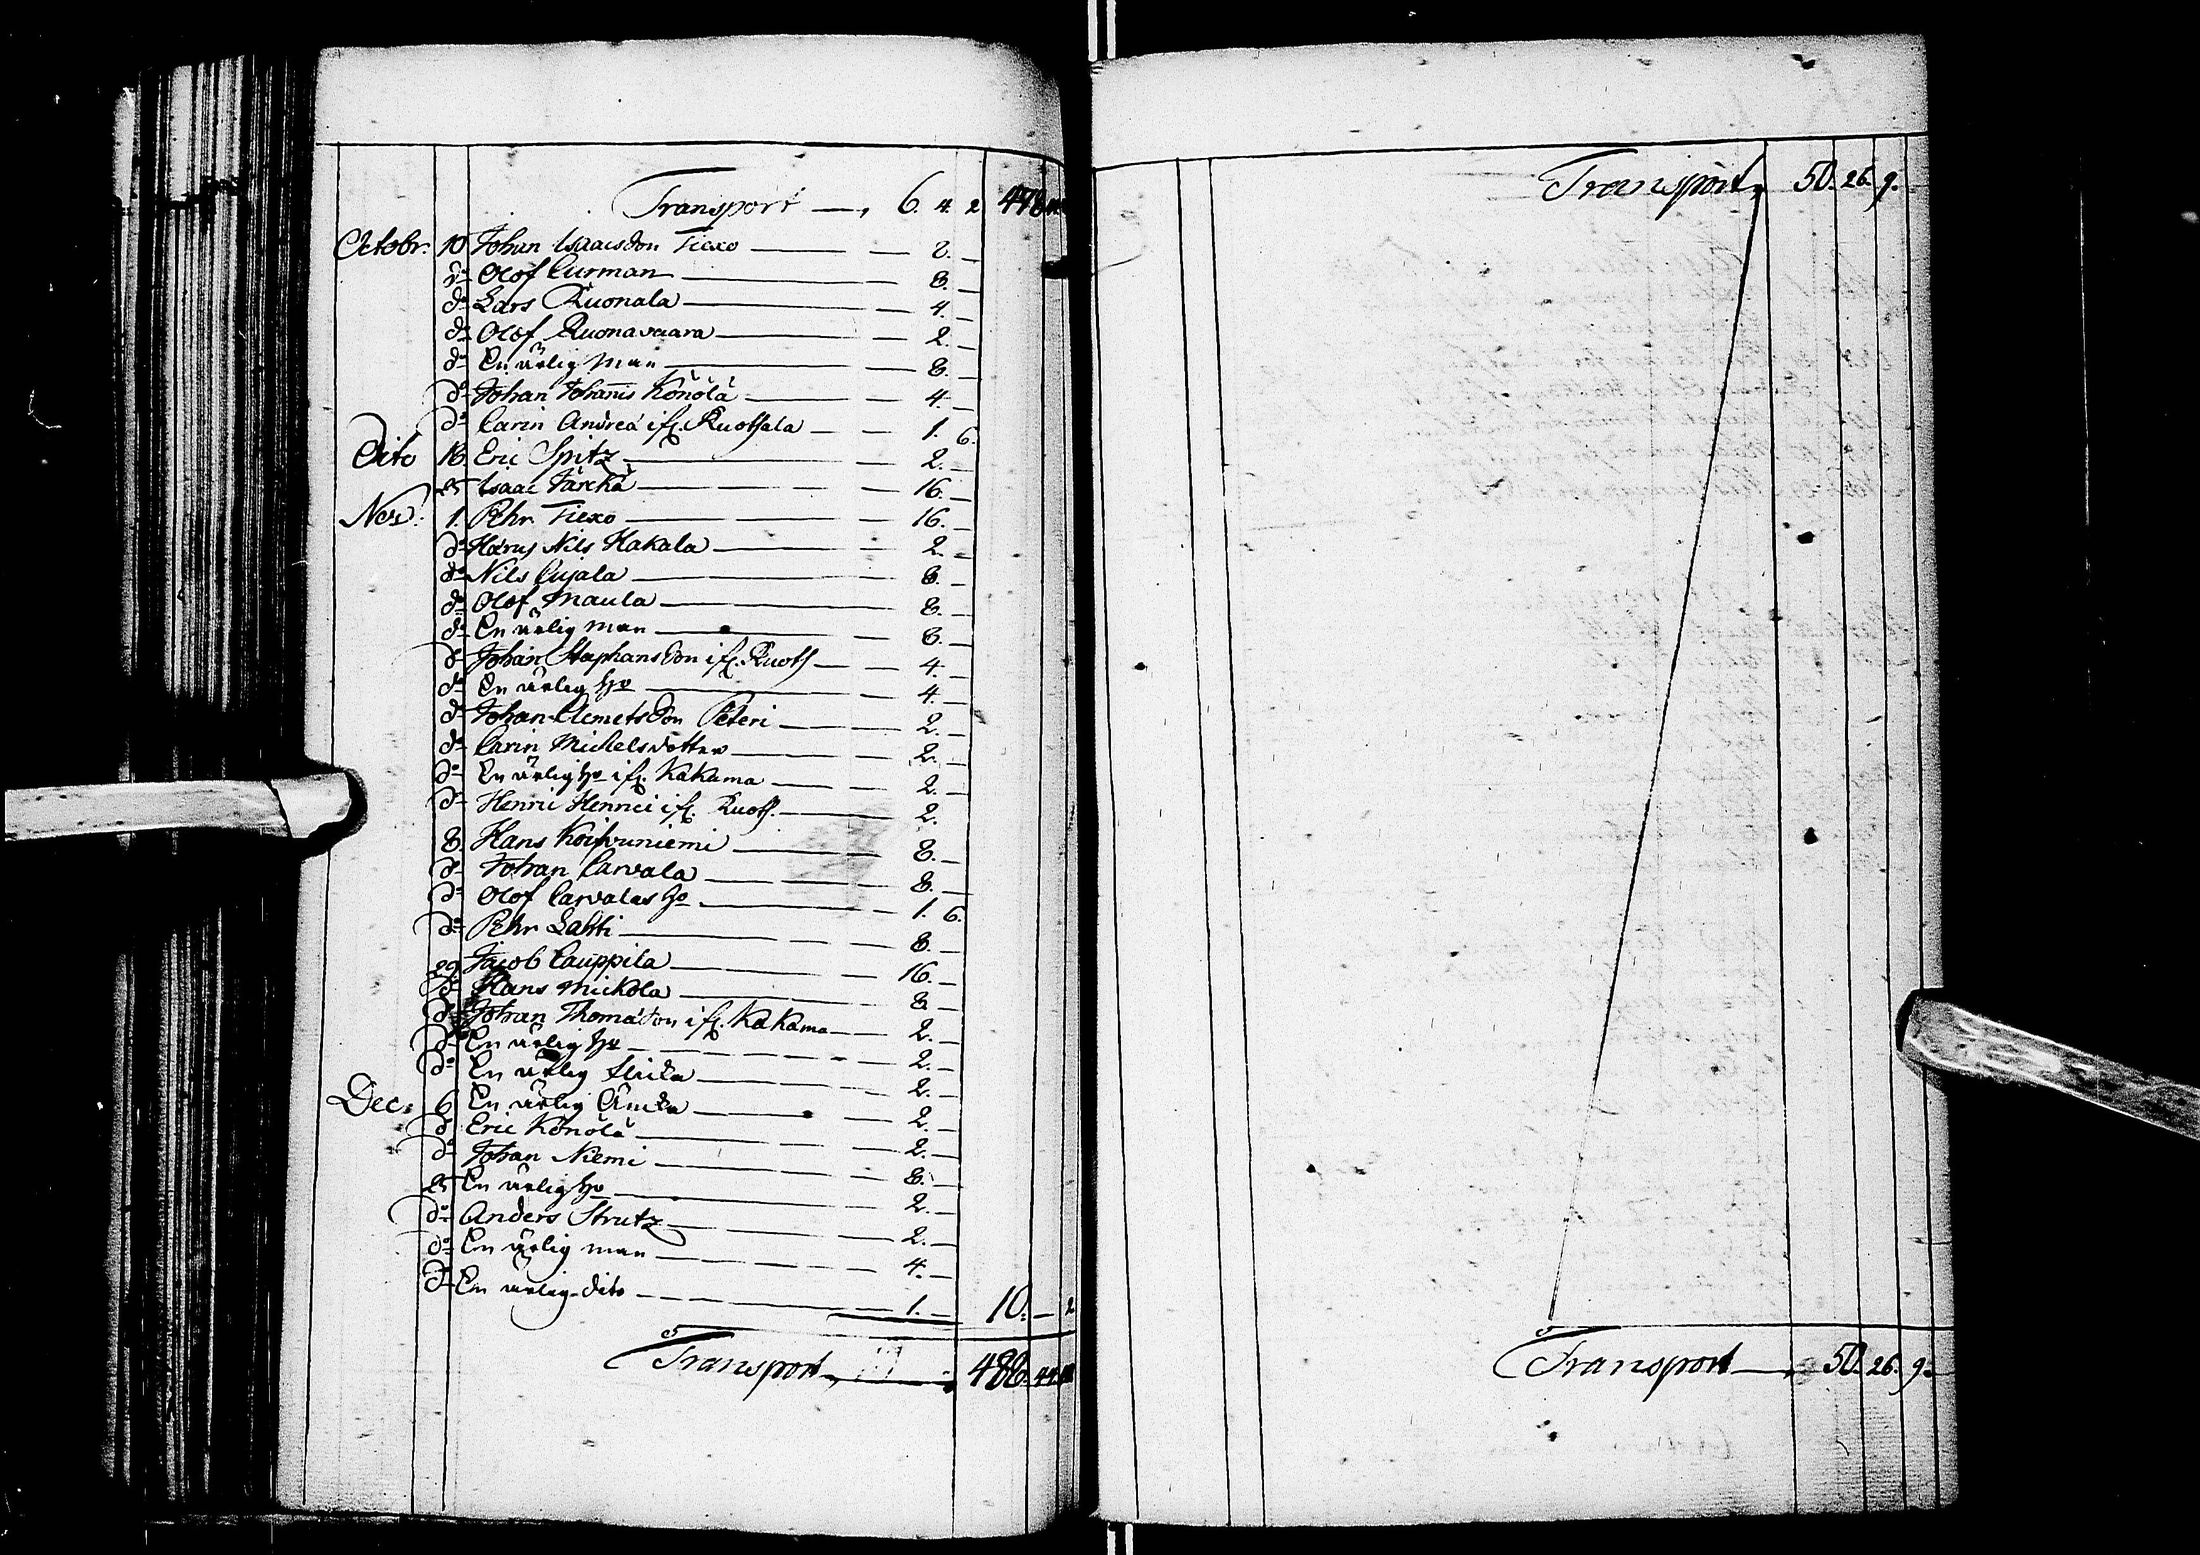 Transport —, 6. 4. 2 478
Octobr. 10 Johan Isaacsson Tiexo — 2. —
do Olof Curman — 8. —
do Lars Ruonala — 4. —
do Olof Ruonavaara — 2. —
do En ärlig Man — 8. —
do Johan Johannis Könölä — 4. —
do Carin Andreæ ifr. Ruothala — 1. 6.
Dito 18 Eric Spitz — 2. —
25 Isaac Färckä — 16. —
Nov. 1. Pehr Tiexo — 16. —
do Nils Kakala — 2. —
do Nils Cujala — 8. —
do Olof Maula — 8. —
do En ärlig man — 8. —
do Johan Staphansson ifr. Ruoth — 4. —
do En ärlig Ho — 4. —
do Johan Clemetsson Peteri — 2. —
do Carin Michelsdotter — 2. —
do En ärlig Ho ifr. Kakama — 2. —
do Henric Henrici ifr. Ruoth. — 2.
8. Hans Koifvuniemi — 8. —
do Johan Carvala — 8. —
do Olof Carvalas Ho — 1. 6.
do Pehr Lahti — 8. —
29 Jacob Cauppila — 16. —
do Hans Mickola — 8 —
do Johan Thomasson ifr. Kakama — 2. —
do En ärlig Ho — 2. —
do En ärlig flicka — 2. —
Dec: 6 En ärlig Änka — 2. —
do Eric Könölä — 2. —
do Johan Niemi — 8. —
25 En ärlig Ho — 2. —
do Anders Strutz — 2. —
do En ärlig man — 4. —
do En ärlig dito — 1. — 10. — 2
Transport — 488. 44.
Transport, 50. 26. 9.
Transport — 50. 26. 9.